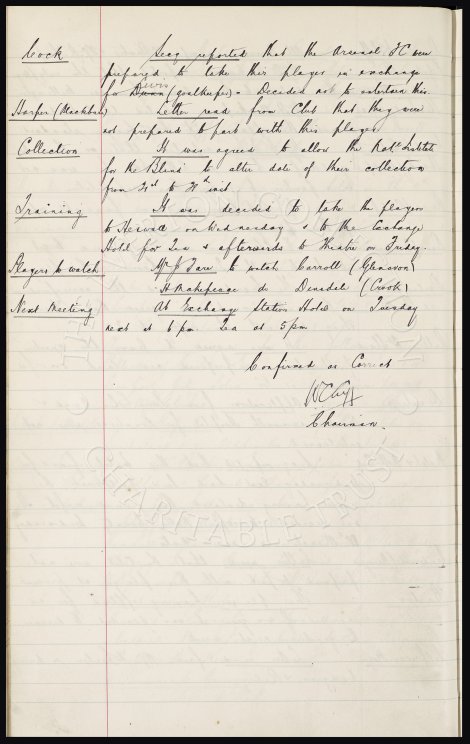 Cock Secy reported that the Arsenal F.C were
prepared to take this player in exchange
for Lewis (goalkeeper) - Decided not to entertain this.
Harper (Blackburn) Letter read from Club that they were
not prepared to part with this player
Collection It was agreed to allow the Natl Institute
for the Blind to alter date of their collection
from to inst.
Training It was decided to take the players
to Heswall on Wednesday & to the Exchange
Hotel for Tea & afterwards to Theatre on Friday.
Players to watch Mr J Tare to watch Carroll (Glenavon)
H Makepeace do Dinsdale (Crook)
Next Meeting At Exchange Station Hotel on Tuesday
next at 6 pm. Tea at 5 pm
Confirmed as Correct
W C Cuff
Chairman.
CHARITABLE TRUST